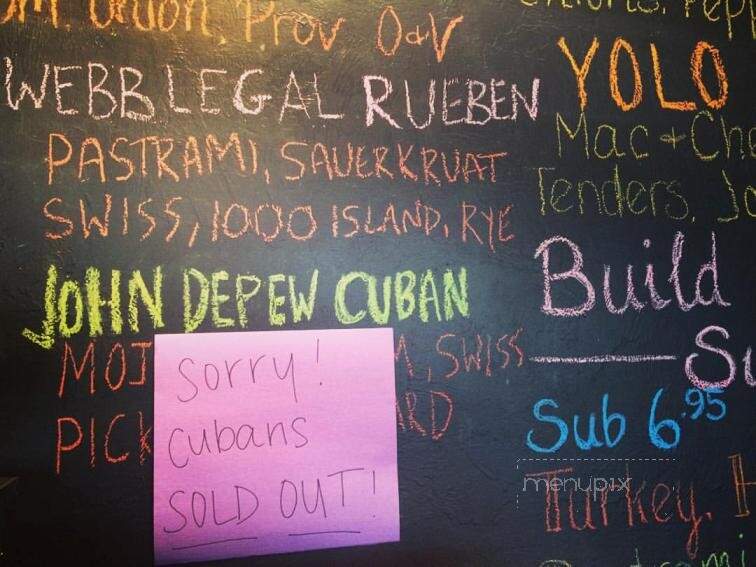 Onion, Prov O&V
WEBB LEGAL RUEBEN
PASTRAMI, SAUERKRUAT
SWISS, 1000 ISLAND, RYE
JOHN DEPEW CUBAN
MOJ M, SWISS
PICK ARD
Sorry!
Cubans
SOLD OUT!
YOLO
Mac + Che
Tenders, Ja
Build
Su
Sub 6.95
menupix
Turkey, H